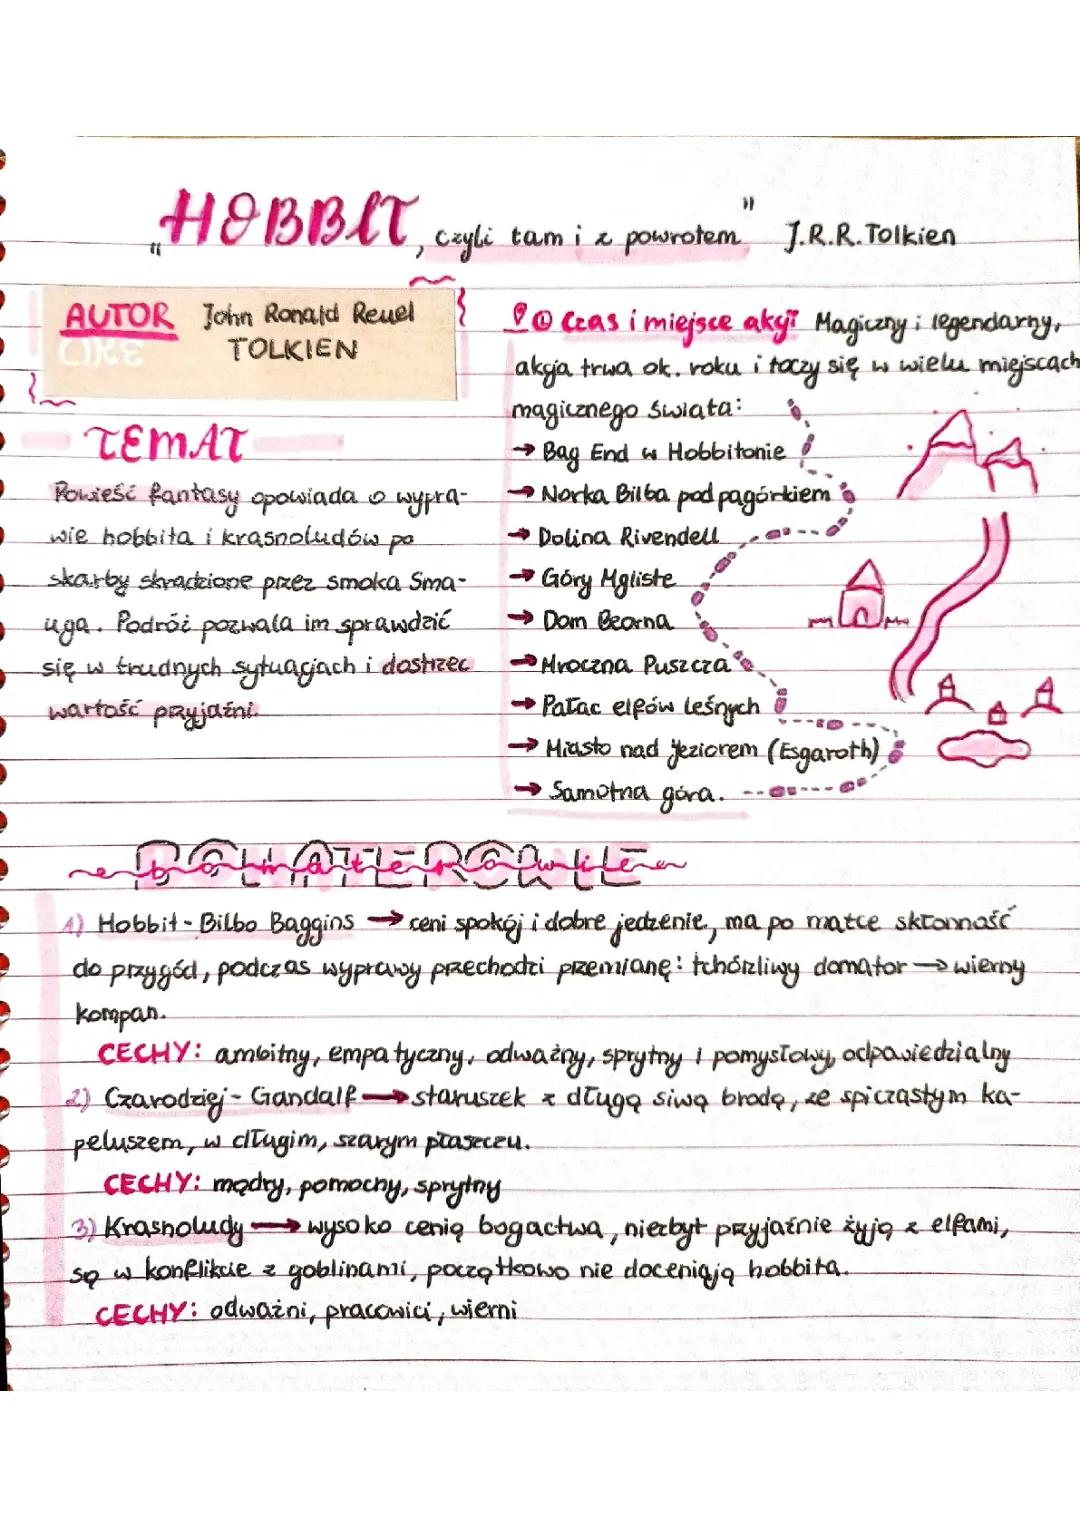 „HOBBIT, czyli tam i z powrotem" J.R.R. Tolkien
AUTOR John Ronald Reuel
TOLKIEN
LIKE
TEMAT
Powieść fantasy opowiada o wypra-
wie hobbita i krasnoludów po
skarby skradzione przez smoka Sma-
uga. Podróż pozwala im sprawdzić
się w trudnych sytuacjach i dostrzec
wartość przyjaźni.
Czas i miejsce akcji Magiczny i legendarny,
akcja trwa ok. roku i toczy się w wielu miejscach
magicznego świata:
→ Bag End w Hobbitonie
→ Norka Bilba pod pagórkiem
→ Dolina Rivendell
→ Góry Mgliste
→ Dom Beorna
→ Mroczna Puszcza
→ Pałac elfów leśnych
→ Miasto nad jeziorem (Esgaroth)
→ Samotna góra.
BOHATEROWIE
bohaterowie
1) Hobbit - Bilbo Baggins → ceni spokój i dobre jedzenie, ma po matce skłonność
do przygód, podczas wyprawy przechodzi przemianę: tchórzliwy domator → wierny
kompan.
CECHY: ambitny, empatyczny, odważny, sprytny i pomysłowy, odpowiedzialny
2) Czarodziej - Gandalf → staruszek z długą siwą brodą, ze spiczastym ka-
peluszem, w długim, szarym płaszczu.
CECHY: mądry, pomocny, sprytny
3) Krasnoludy → wysoko cenią bogactwa, niezbyt przyjaźnie żyją z elfami,
są w konflikcie z goblinami, początkowo nie doceniają hobbita.
CECHY: odważni, pracowici, wierni